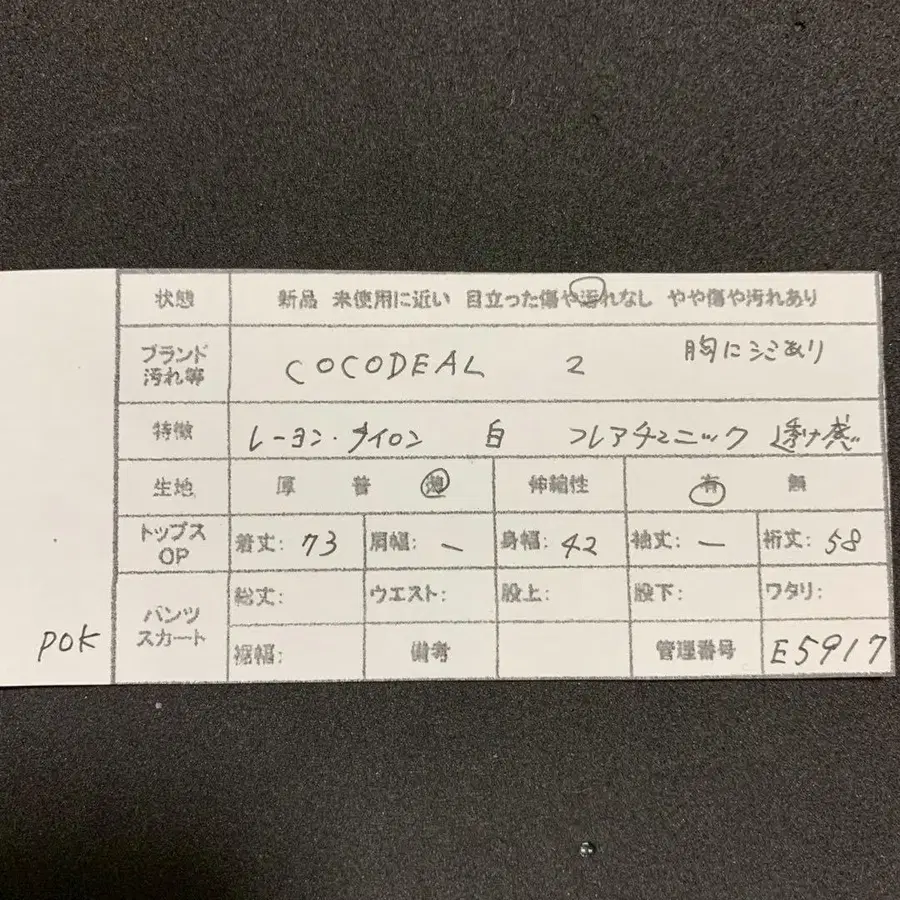 状態 新品 未使用に近い 目立った傷や汚れなし やや傷や汚れあり
ブランド 汚れ等 COCODEAL 2 胸にシミあり
特徴 レーヨン・ナイロン 白 フレアチュニック 透け感
生地 厚 普 薄 伸縮性 有 無
トップス OP 着丈: 73 肩幅: － 身幅: 42 袖丈: － 裄丈: 58
パンツ スカート 総丈: ウエスト: 股上: 股下: ワタリ:
POK 裾幅: 備考 管理番号 E5917